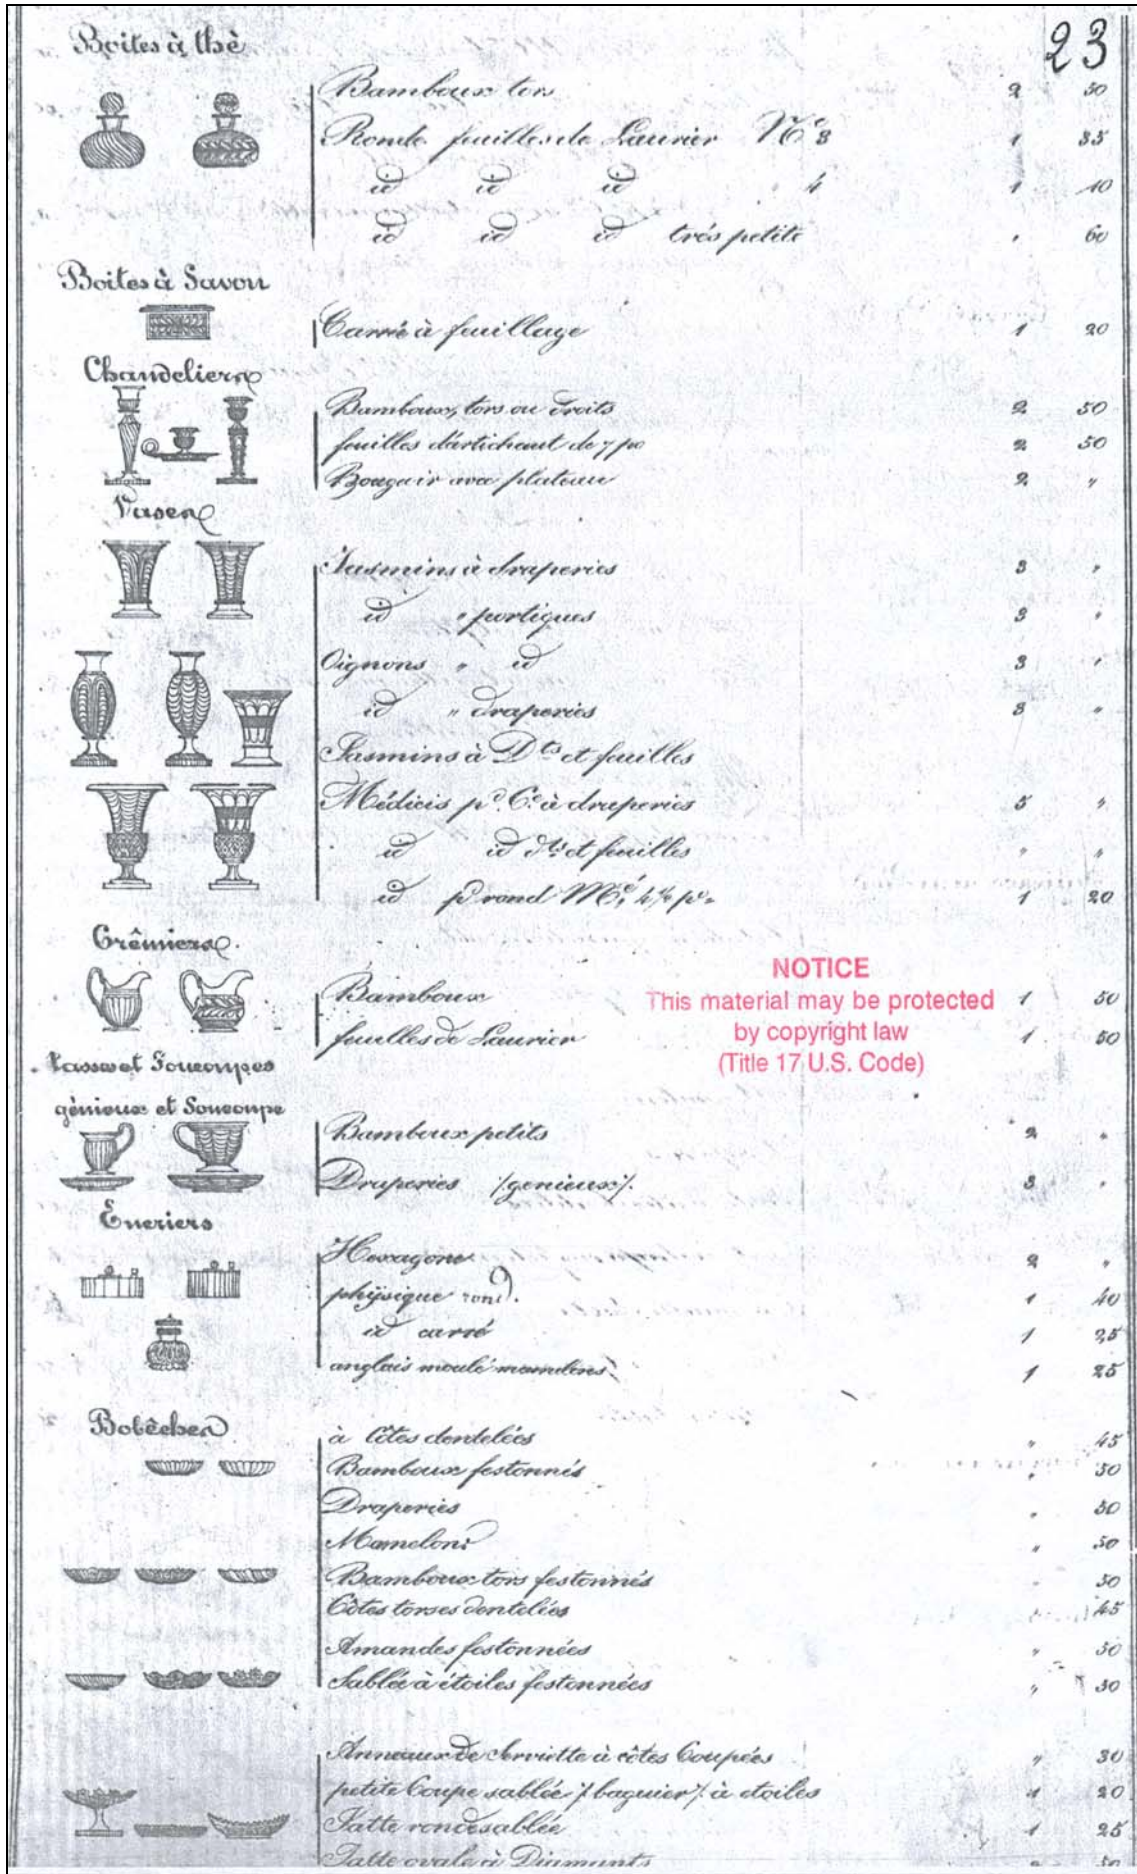 23
Boites à thé
Bamboux tors 2 50
Ronde feuilles de Laurier N° 3 1 35
id id id " 4 1 10
id id id très petite " 60
Boites à Savon
Carré à feuillage 1 20
Chandeliers
Bamboux, tors ou droits 2 50
feuilles d'artichaut de 7 po 2 50
Bougoir avec plateau 2 "
Vases
Jasmins à draperies 3 "
id " portiques 3 "
Oignons " id 3 "
id " draperies 3 "
Jasmins à Dts et feuilles
Médicis pd. Cé à draperies 5 "
id id dts et feuilles " "
id pd rond 1 20
Crêmiers.
Bamboux 1 50
feuilles de Laurier 1 50
NOTICE
This material may be protected
by copyright law
(Title 17 U.S. Code)
Tasses et Soucoupes
génieux et Soucoupe
Bamboux petits 2 "
Draperies /génieux/. 3 "
Encriers
Hexagone 2 "
phÿsique rond. 1 40
id carré 1 25
anglais moulé mamelons 1 25
Bobêches
à Côtes dentelées " 45
Bamboux festonnés " 50
Draperies " 50
Mamelons " 50
Bamboux tors festonnés " 50
Côtes torses dentelées " 45
Amandes festonnées " 50
Sablée à étoiles festonnées " 50
Anneaux de Serviette à côtes Coupées " 30
petite Coupe sablée /baguier/. à etoiles 1 20
Jatte ronde sablée 1 25
Jatte ovale à Diamants 50